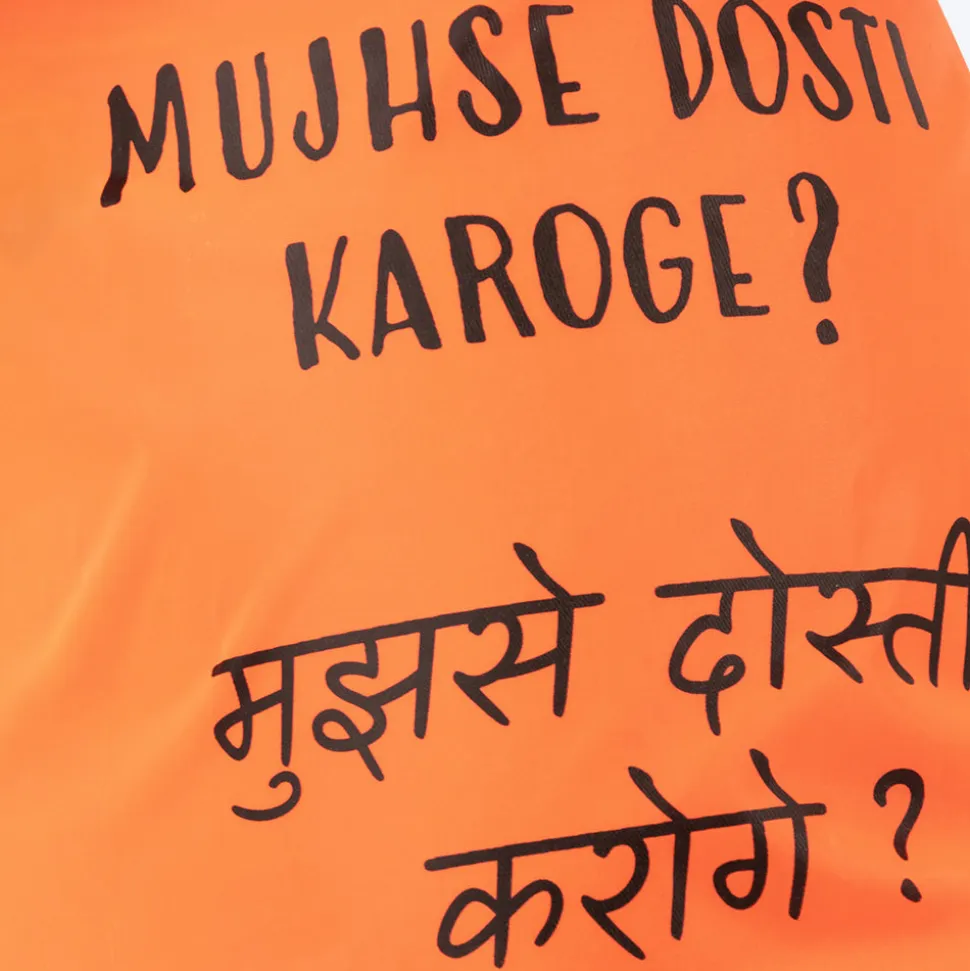 MUJHSE DOSTI
KAROGE?
मुझसे दोस्ती
करोगे ?